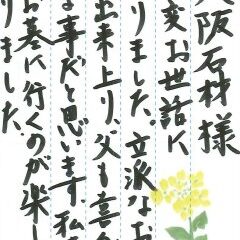 大阪石材様
変お世話に
りました。立派なお
出来上り、父も喜ん
な事だと思います。私
お墓に行くのが楽し
りました。